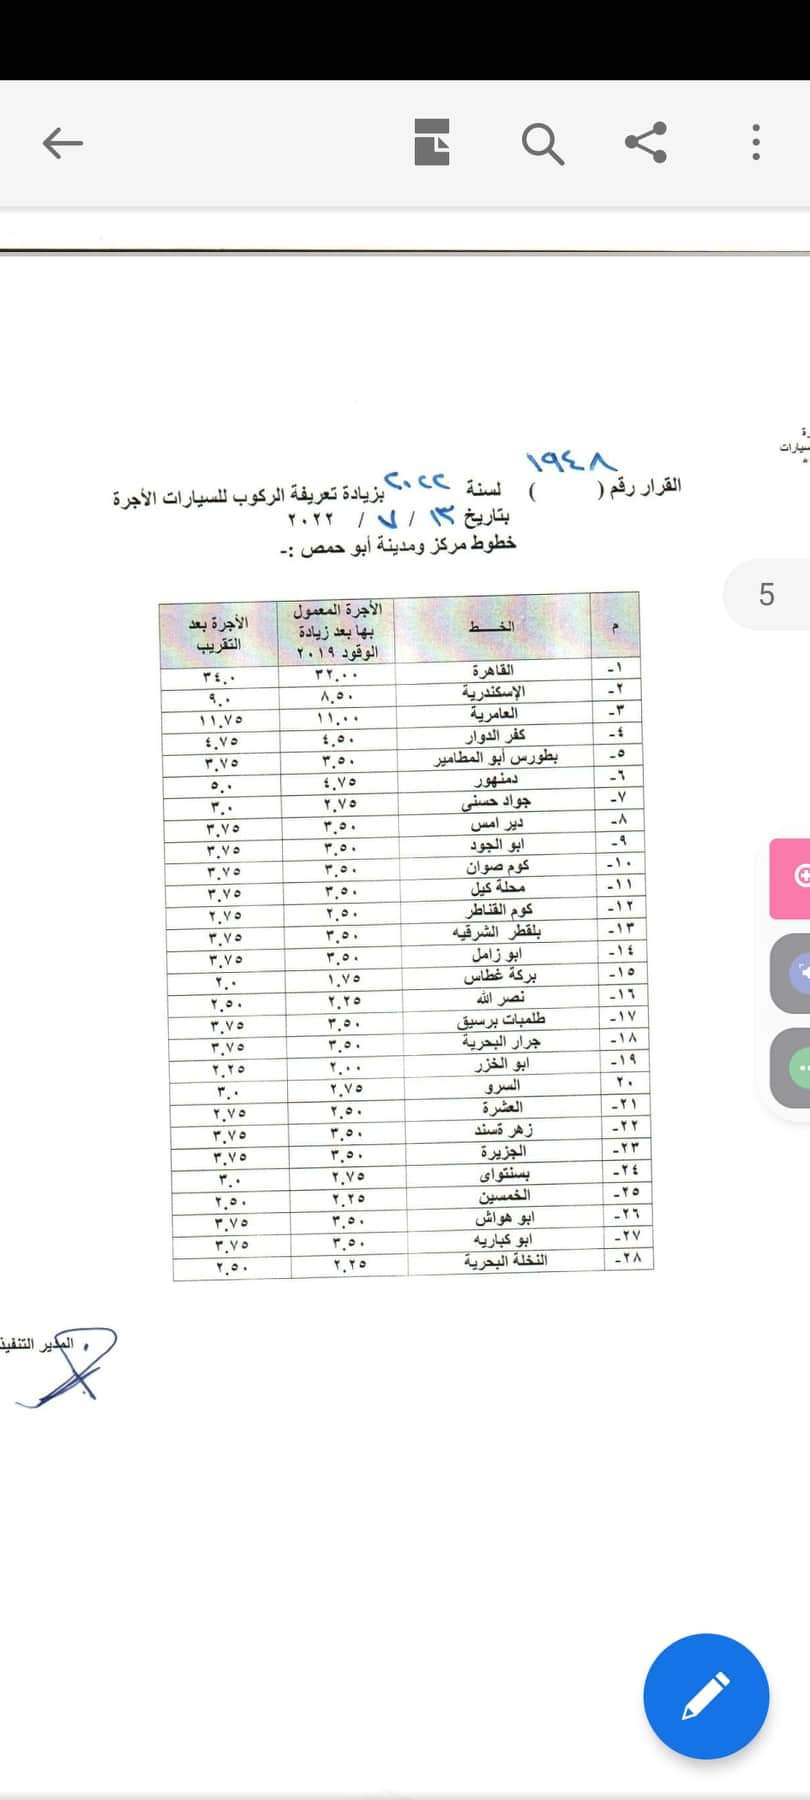 ة
سيارات
القرار رقم ( ١٩٤٨ ) لسنة ٢٠٢٢ بزيادة تعريفة الركوب للسيارات الأجرة
بتاريخ ١٣ / ٧ / ٢٠٢٢
خطوط مركز ومدينة أبو حمص :-
5
م الخــط الأجرة المعمول بها بعد زيادة الوقود ٢٠١٩ الأجرة بعد التقريب
١- القاهرة ٣٢.٠٠ ٣٤.٠
٢- الإسكندرية ٨.٥٠ ٩.٠
٣- العامرية ١١.٠٠ ١١.٧٥
٤- كفر الدوار ٤.٥٠ ٤.٧٥
٥- بطورس أبو المطامير ٣.٥٠ ٣.٧٥
٦- دمنهور ٤.٧٥ ٥.٠
٧- جواد حسنى ٢.٧٥ ٣.٠
٨- دير امس ٣.٥٠ ٣.٧٥
٩- ابو الجود ٣.٥٠ ٣.٧٥
١٠- كوم صوان ٣.٥٠ ٣.٧٥
١١- محلة كيل ٣.٥٠ ٣.٧٥
١٢- كوم القناطر ٢.٥٠ ٢.٧٥
١٣- بلقطر الشرقيه ٣.٥٠ ٣.٧٥
١٤- ابو زامل ٣.٥٠ ٣.٧٥
١٥- بركة غطاس ١.٧٥ ٢.٠
١٦- نصر الله ٢.٢٥ ٢.٥٠
١٧- طلمبات برسيق ٣.٥٠ ٣.٧٥
١٨- جرار البحرية ٣.٥٠ ٣.٧٥
١٩- ابو الخزر ٢.٠٠ ٢.٢٥
٢٠ السرو ٢.٧٥ ٣.٠
٢١- العشرة ٢.٥٠ ٢.٧٥
٢٢- زهر قسند ٣.٥٠ ٣.٧٥
٢٣- الجزيرة ٣.٥٠ ٣.٧٥
٢٤- بسنتواى ٢.٧٥ ٣.٠
٢٥- الخمسين ٢.٢٥ ٢.٥٠
٢٦- ابو هواش ٣.٥٠ ٣.٧٥
٢٧- ابو كباريه ٣.٥٠ ٣.٧٥
٢٨- النخلة البحرية ٢.٢٥ ٢.٥٠
المدير التنفيذ